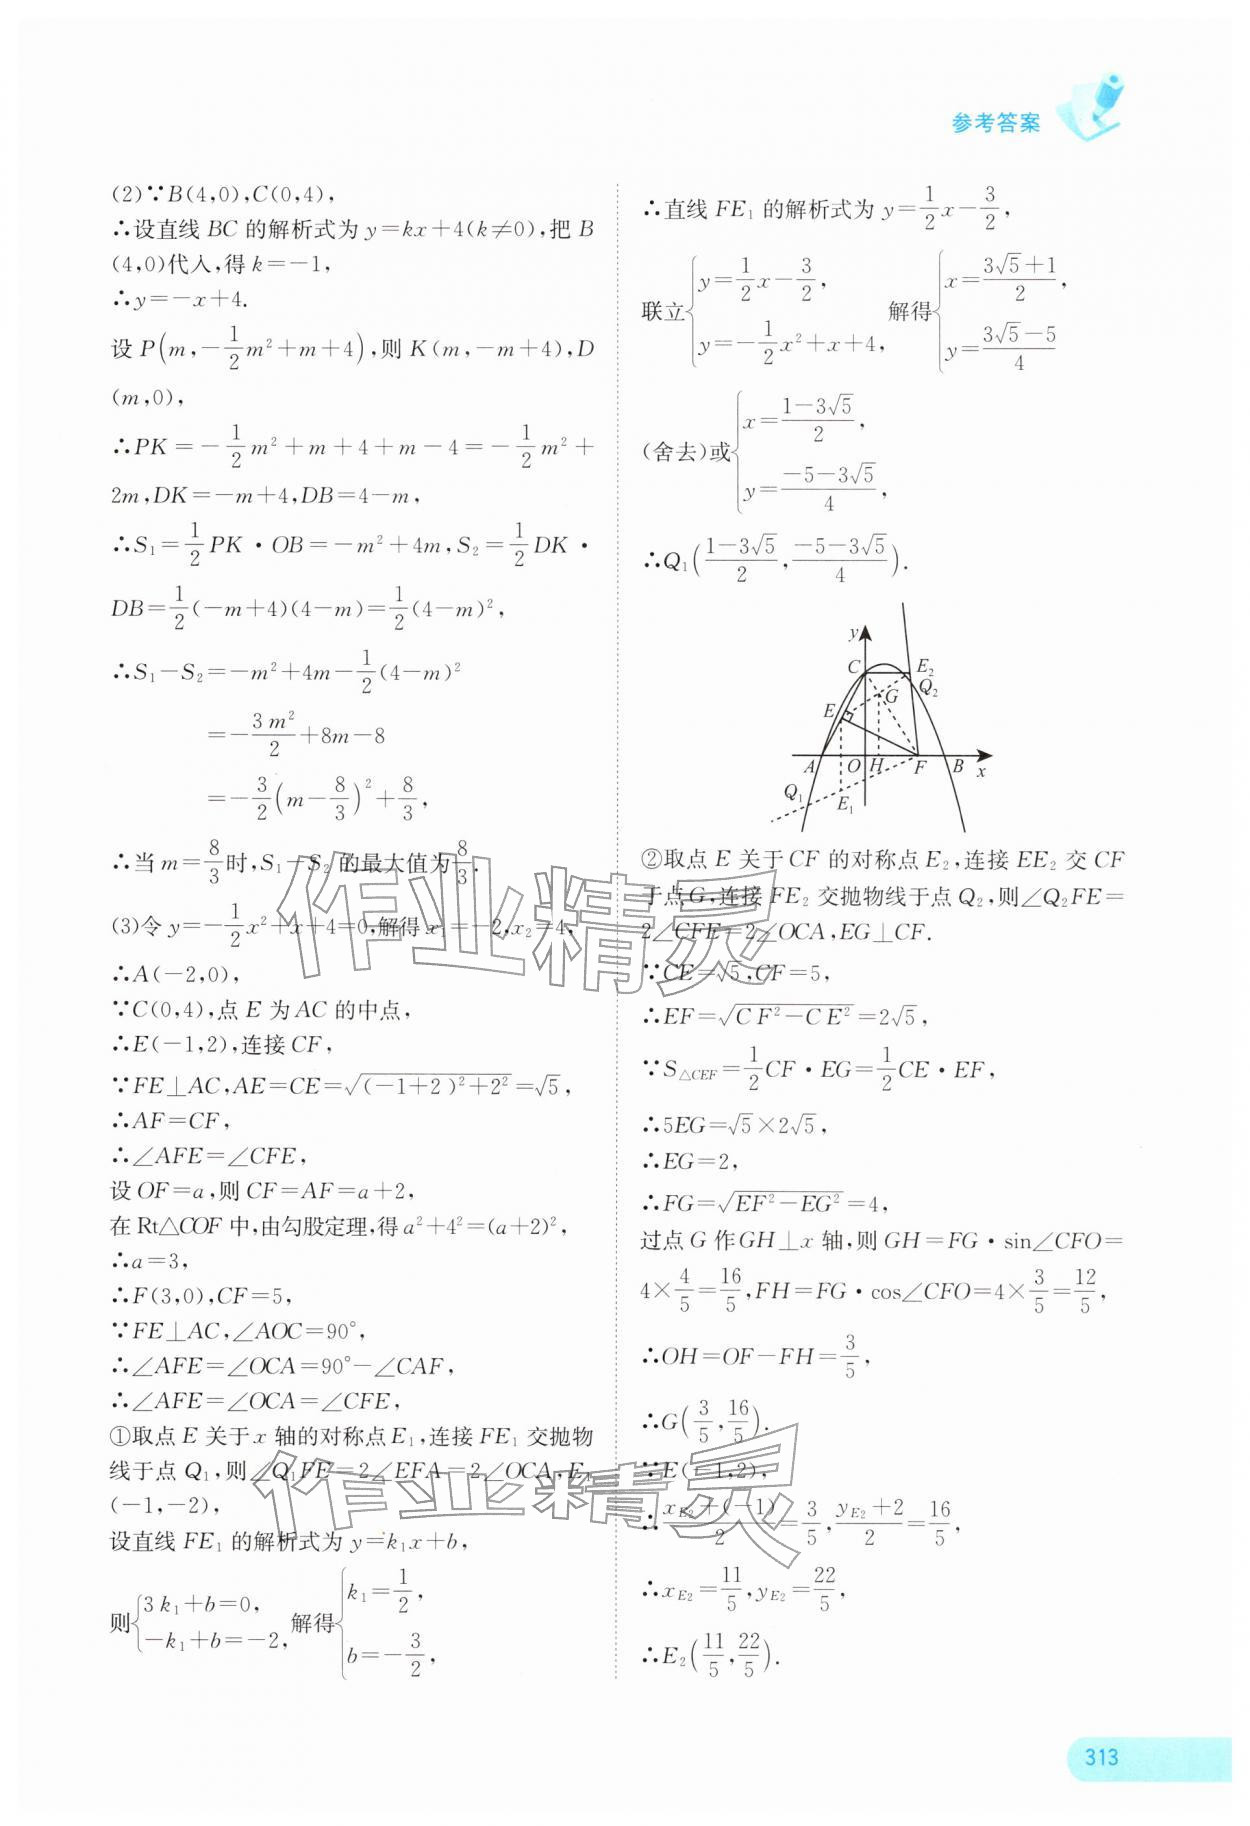 参考答案
(2)∵B(4,0),C(0,4),
∴设直线 BC 的解析式为 y=kx+4(k≠0),把 B
(4,0)代入,得 k=-1,
∴y=-x+4.
设 P(m,-1/2m²+m+4),则 K(m,-m+4),D
(m,0),
∴PK=-1/2m²+m+4+m-4=-1/2m²+
2m,DK=-m+4,DB=4-m,
∴S₁=1/2PK·OB=-m²+4m,S₂=1/2DK·
DB=1/2(-m+4)(4-m)=1/2(4-m)²,
∴S₁-S₂=-m²+4m-1/2(4-m)²
=-3m²/2+8m-8
=-3/2(m-8/3)²+8/3,
∴当 m=8/3时,S₁-S₂ 的最大值为8/3.
(3)令 y=-1/2x²+x+4=0,解得 x₁=-2,x₂=4,
∴A(-2,0),
∵C(0,4),点 E 为 AC 的中点,
∴E(-1,2),连接 CF,
∵FE⊥AC,AE=CE=√((-1+2)²+2²)=√5,
∴AF=CF,
∴∠AFE=∠CFE,
设 OF=a,则 CF=AF=a+2,
在 Rt△COF 中,由勾股定理,得 a²+4²=(a+2)²,
∴a=3,
∴F(3,0),CF=5,
∵FE⊥AC,∠AOC=90°,
∴∠AFE=∠OCA=90°-∠CAF,
∴∠AFE=∠OCA=∠CFE,
①取点 E 关于 x 轴的对称点 E₁,连接 FE₁ 交抛物
线于点 Q₁,则∠Q₁FE=2∠EFA=2∠OCA,E₁
(-1,-2),
设直线 FE₁ 的解析式为 y=k₁x+b,
则{3k₁+b=0, -k₁+b=-2, 解得{k₁=1/2, b=-3/2,
∴直线 FE₁ 的解析式为 y=1/2x-3/2,
联立{y=1/2x-3/2, y=-1/2x²+x+4, 解得{x=(3√5+1)/2, y=(3√5-5)/4
(舍去)或{x=(1-3√5)/2, y=(-5-3√5)/4,
∴Q₁((1-3√5)/2,(-5-3√5)/4).
y
C
E₂
Q₂
G
E
A
O
H
F
B
x
Q₁
E₁
②取点 E 关于 CF 的对称点 E₂,连接 EE₂ 交 CF
于点 G,连接 FE₂ 交抛物线于点 Q₂,则∠Q₂FE=
2∠CFE=2∠OCA,EG⊥CF.
∵CE=√5,CF=5,
∴EF=√(CF²-CE²)=2√5,
∵S△CEF=1/2CF·EG=1/2CE·EF,
∴5EG=√5×2√5,
∴EG=2,
∴FG=√(EF²-EG²)=4,
过点 G 作 GH⊥x 轴,则 GH=FG·sin∠CFO=
4×4/5=16/5,FH=FG·cos∠CFO=4×3/5=12/5,
∴OH=OF-FH=3/5,
∴G(3/5,16/5).
∵E(-1,2),
∴(x_E₂+(-1))/2=3/5,(y_E₂+2)/2=16/5,
∴x_E₂=11/5,y_E₂=22/5,
∴E₂(11/5,22/5).
作业精灵
作业精灵
313